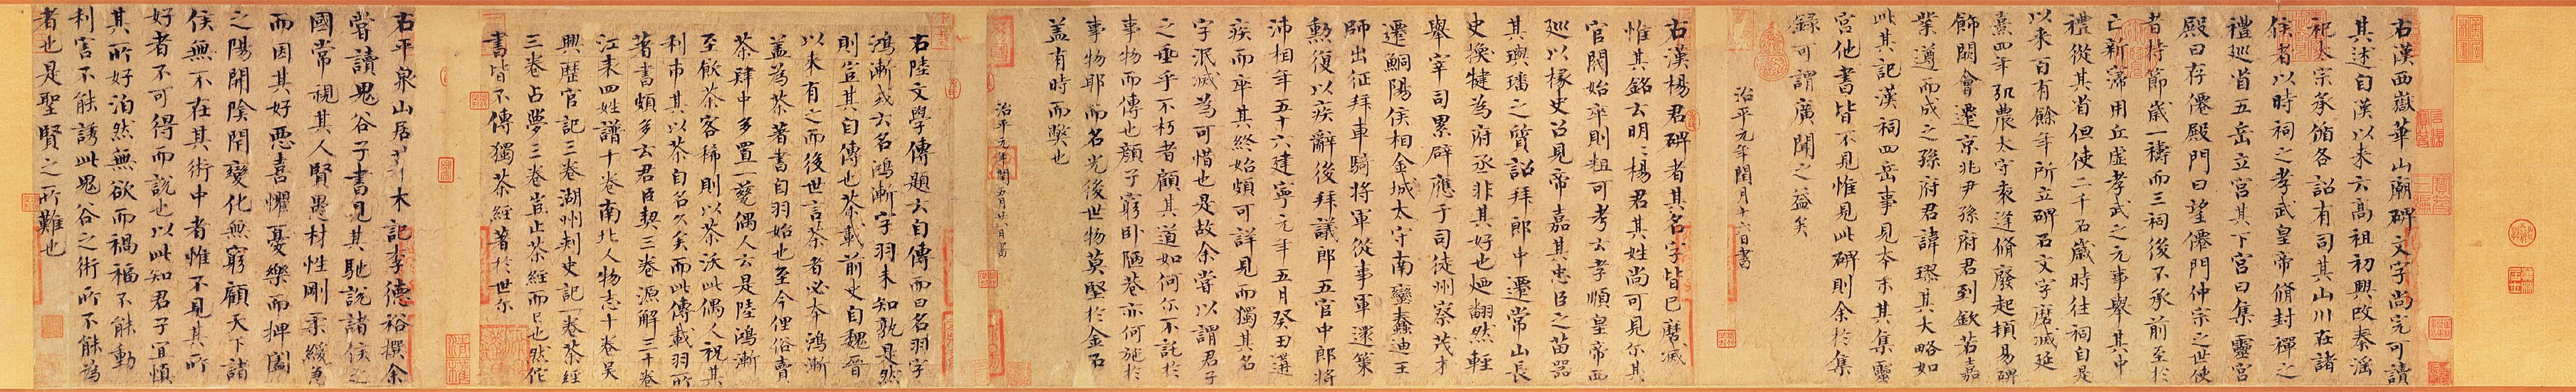 右漢西嶽華山廟碑文字尚完可讀
其述自漢以来云高祖初興改秦淫
祀太宗承循各詔有司其山川在諸
侯者以時祠之孝武皇帝脩封禪之
禮巡省五岳立宮其下宮曰集靈宮
殿曰存僊殿門曰望僊門仲宗之世使
者持節歳一禱而三祠後不承前至於
亡新寖用丘虚孝武之元事舉其中
禮從其省但使二千石歳時往祠自是
以来百有餘年所立碑石文字磨滅延
熹四年弘農太守袁逢脩廢起頓易碑
飾闕會遷京兆尹孫府君到欽若嘉
業遵而成之孫府君諱璆其大略如
此其記漢祠四岳事見本末其集靈
宮他書皆不見惟見此碑則余於集
録可謂廣聞之益矣
治平元年閏月十六日書
右漢楊君碑者其名字皆已磨滅
惟其銘云明明楊君其姓尚可見尔其
官閥始卒則粗可考云孝順皇帝西
巡以掾史召見帝嘉其忠臣之苗器
其璵璠之質詔拜郎中遷常山長
史換犍為府丞非其好也廼翻然輕
舉宰司累辟應于司徒州察茂才
遷鮦陽侯相金城太守南蠻蠢迪王
師出征拜車騎將軍從事軍還策
勲復以疾辭後拜議郎五官中郎將
沛相年五十六建寧元年五月癸丑遘
疾而卒其終始頗可詳見而獨其名
字泯滅為可惜也是故余嘗以謂君子
之垂乎不朽者顧其道如何尔不託於
事物而傳也顏子窮卧陋巷亦何施於
事物耶而名光後世物莫堅於金石
盖有時而弊也
治平元年閏五月廿八日書
右陸文學傳題云自傳而曰名羽字
鴻漸或云名鴻漸字羽未知孰是然
則豈其自傳也茶載前史自魏晋
以来有之而後世言茶者必本鴻漸
盖為茶著書自羽始也至今俚俗賣
茶肆中多置一甆偶人云是陸鴻漸
至飲茶客稀則以茶沃此偶人祝其
利市其以茶自名久矣而此傳載羽所
著書頗多云君臣契三卷源解三十卷
江表四姓譜十卷南北人物志十卷吳
興歴官記三卷湖州刺史記一卷茶經
三卷占夢三卷豈止茶經而已也然佗
書皆不傳獨茶經著於世尔
右平泉山居草木記李德裕撰余
嘗讀鬼谷子書見其馳說諸侯之
國常視其人賢愚材性剛柔緩急
而因其好惡喜懼憂樂而捭闔
之陽開陰閉變化無窮顧天下諸
侯無不在其術中者惟不見其所
好者不可得而說也以此知君子宜慎
其所好泊然無欲而禍福不能動
利害不能誘此鬼谷之術所不能為
者也是聖賢之所難也